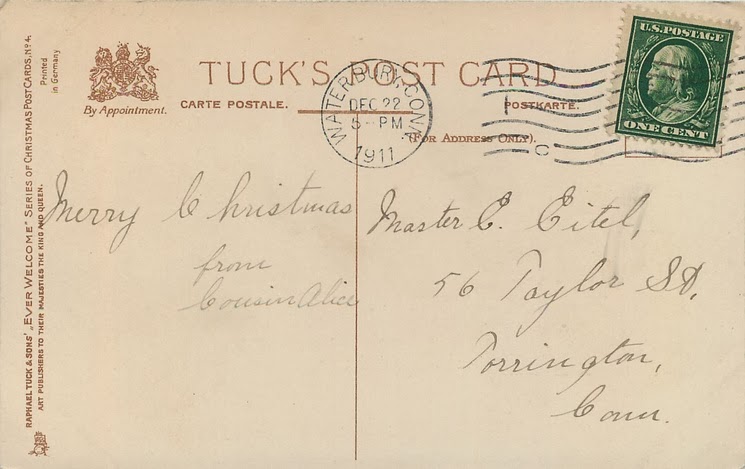 RAPHAEL TUCK & SONS' „EVER WELCOME" SERIES OF CHRISTMAS POST CARDS, No 4.
ART PUBLISHERS TO THEIR MAJESTIES THE KING AND QUEEN.
Printed
in Germany
By Appointment.
TUCK'S POST CARD
CARTE POSTALE.
POSTKARTE.
(FOR ADDRESS ONLY).
WATERBURY, CONN.
DEC 22
5-PM
1911
C
U.S. POSTAGE
ONE CENT
Merry Christmas
from
Cousin Alice
Master C. Eitel,
56 Taylor St,
Torrington,
Conn.